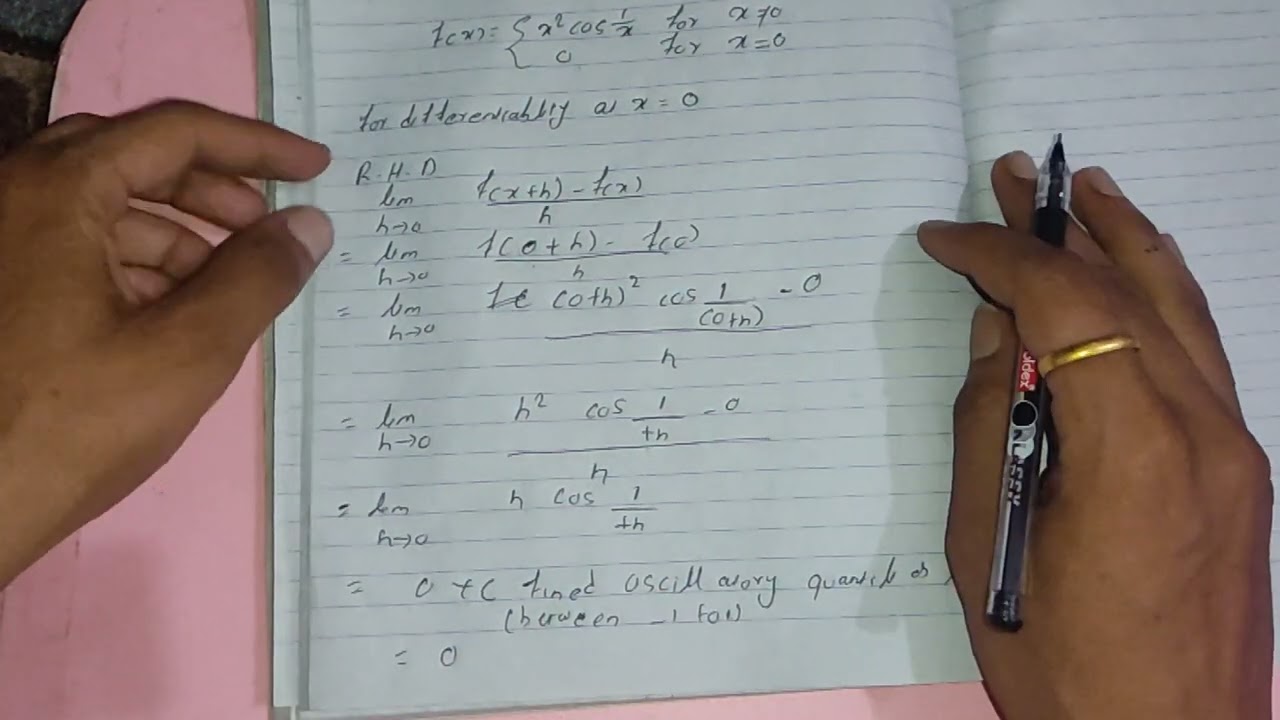 f(x) = { x² cos 1/x for x≠0
0 for x=0
for differentiability at x = 0
R.H.D
lim h→0 f(x+h) - f(x) / h
= lim h→0 f(0+h) - f(0) / h
= lim h→0 (0+h)² cos 1/(0+h) - 0 / h
= lim h→0 h² cos 1/+h - 0 / h
= lim h→0 h cos 1/+h
= 0 oscillatory
(between -1 to 1)
= 0